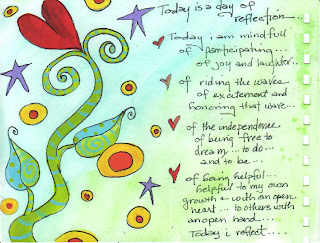 Today is a day of
reflection....
Today i am mindfull
of participating...
of joy and laughter...
of riding the waves
of excitement and
honoring that wave...
of the independence
of being free to
dream... to do...
and to be...
of being helpful...
helpful to my own
growth & with an open
heart... to others with
an open hand....
Today i reflect....